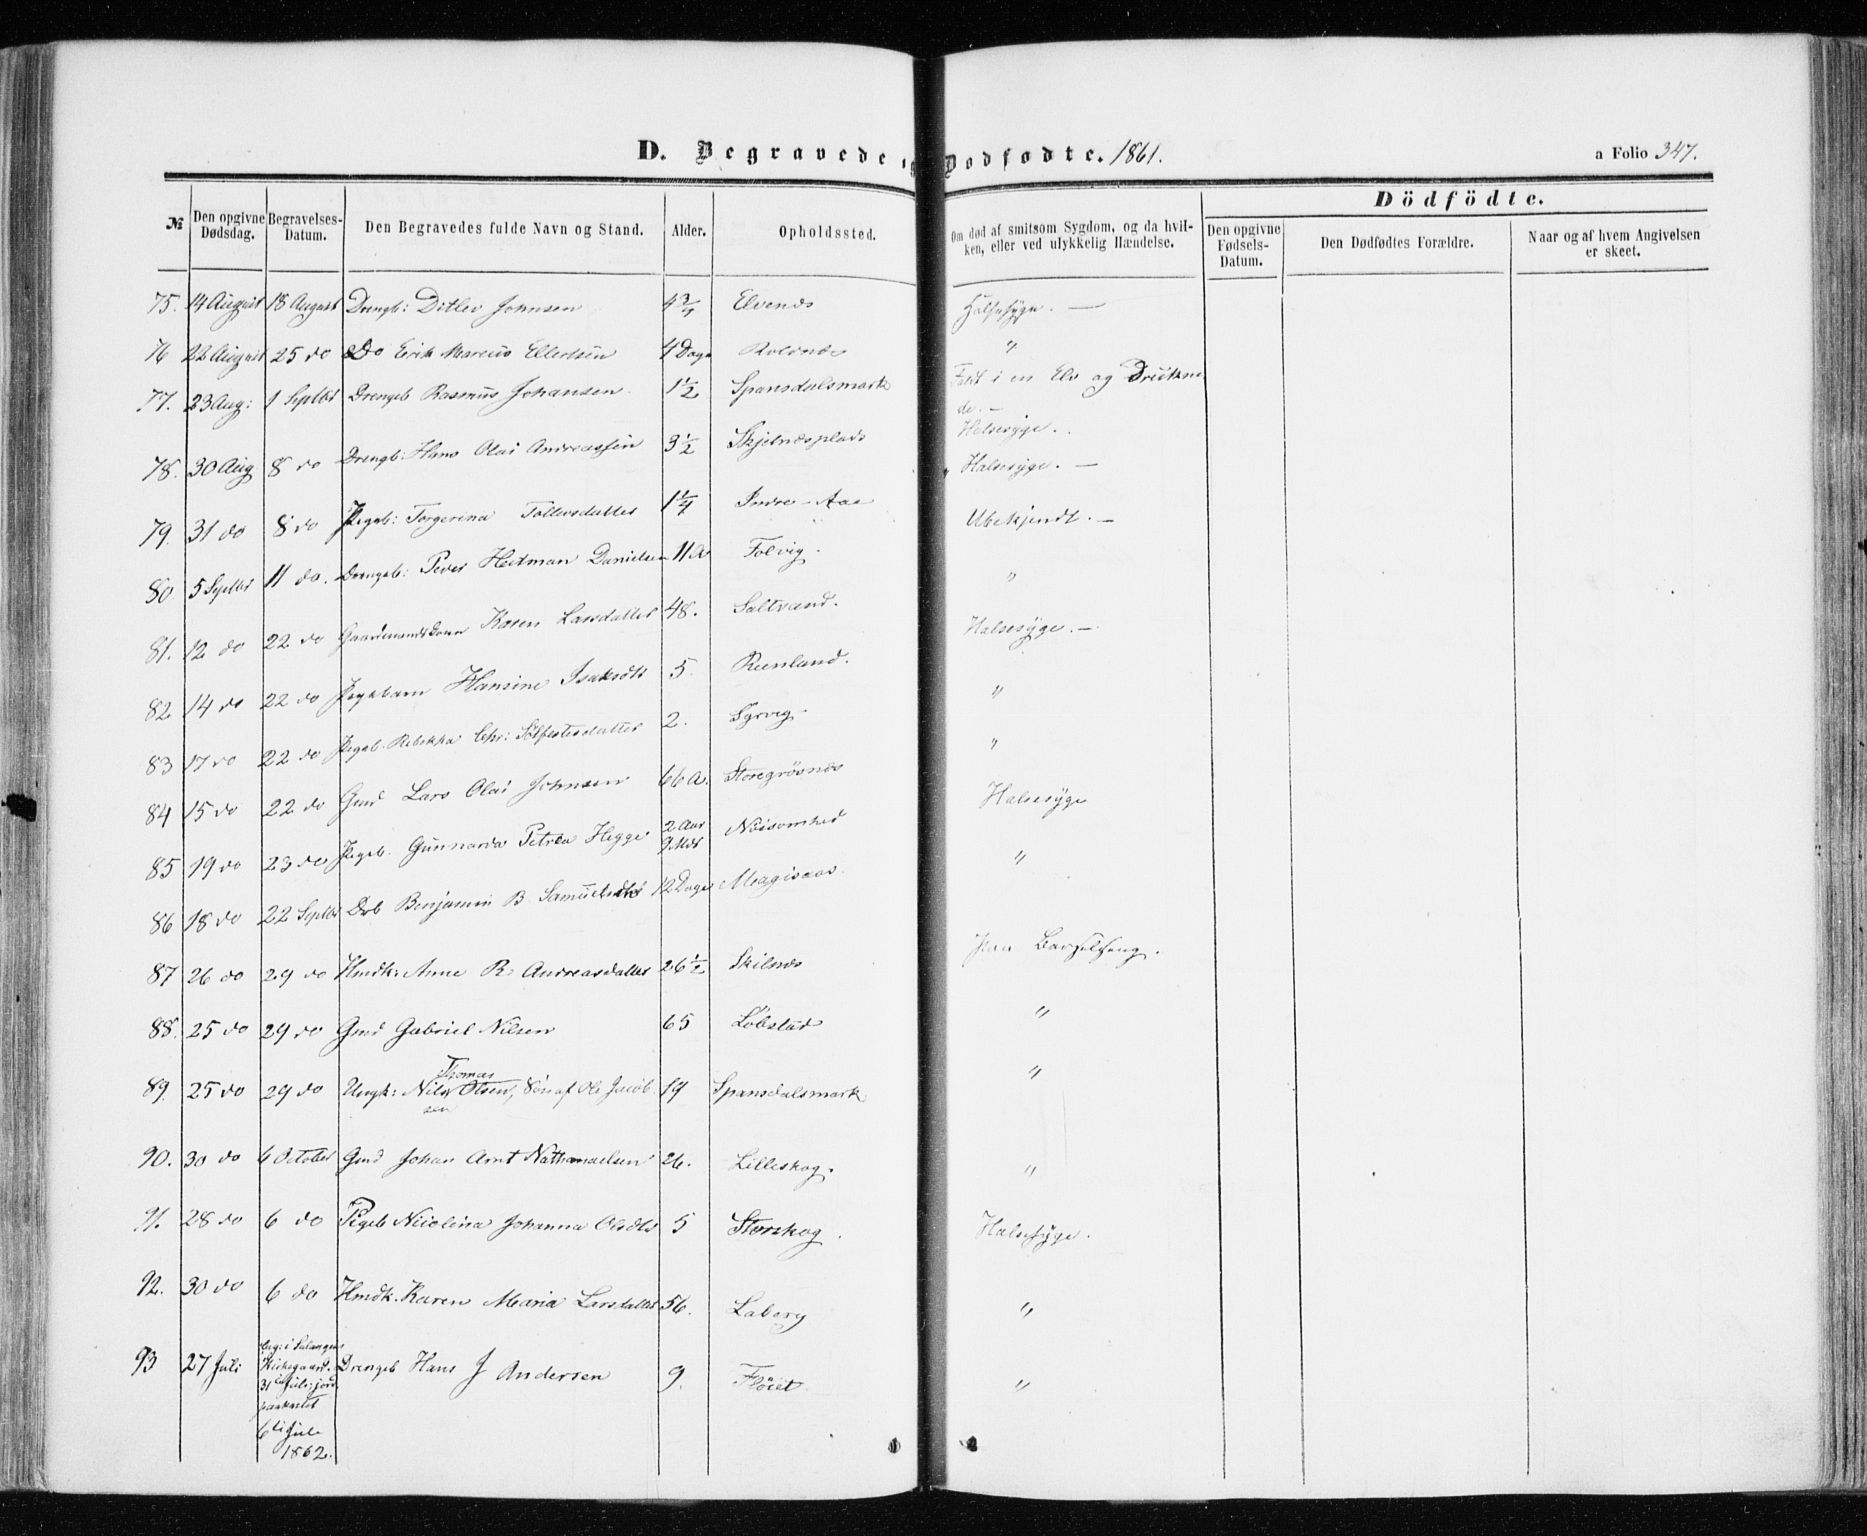 D. Begravede og Dødfødte. 1861.
a Folio 347.
Dödfödte.
№ Den opgivne Dødsdag. Begravelses-Datum. Den Begravedes fulde Navn og Stand. Alder. Opholdssted. Om død af smitsom Sygdom, og da hvilken, eller ved ulykkelig Hændelse. Den opgivne Fødsels-Datum. Den Dødfødtes Forældre. Naar og af hvem Angivelsen er skeet.
75. 14 August 18 August Drengb: Ditlev Johnsen 4 3/4 Elvenæs Halsesyge. —
76 22 August 25 do Do Erik Marcus Ellertsen 4 Dage "
77. 23 Aug: 1 Septbr Drengeb Rasmus Johansen 1 1/2 Spansdalsmark Faldt i en Elv og Druknede. —
Halsesyge.
78. 30 Aug 8 do Drengb: Hans Olai Andreassen 3 1/2 Skjelnæsplads Halsesyge. —
79. 31 do 8 do Pigeb: Torgerina Tollevsdatter 1 1/4 Indre-Aae Ubekjendt. —
80 5 Septbr 11 do. Drengeb: Peder Heitman Danielsen 11 A Folvig. "
81. 12 do 22 do Gaardmandskone Karen Larsdatter 48. Saltvand. Halsesyge. —
82 14 do 22 do Pigebarn Hansine Isaksdtr 5. Reenland. "
83 17 do 22 do Pigeb. Rebekka Chr: Sölfestersdatter 2. Gjrvig. "
84 15 do 22 do Gmd Lars Olai Johnsen 66 A. Storegrövnæs Halsesyge
85 19 do 23 do Pigeb. Gunnarda Petrea Hegge 2 Aar 9 Mdr Nöisomhed "
86 18 do 22 Septbr Drb Benjamin B 12 Dage
87 26 do 29 do Hmdk: Anne R. Andreasdatter 26 1/2 Skilnæs Paa Barselseng.
88. 25 do 29 do Gmd Gabriel Nilsen 65 Löbstad "
89. 25 do 29 do Ungk: Nils Thomas Olsen, Sön af Ole Jacobsen 19 Spansdalsmark "
90. 30 do 6 October Gmd Johan Arnt Nathanaelsen 26. Lilleskog. "
91. 28 do 6 do Pigeb Nicolina Johanna Olsdtr 5 Storskog. Halsesyge.
92. 30 do 6 do Hmdk. Karen Maria Larsdatter 56. Laberg "
93 27 Juli beg: i Salangens Kirkegaard. 31te Juli, jordpaakastet 6te Juli 1862. Drengeb Hans J Andersen 9. Flöiet. "